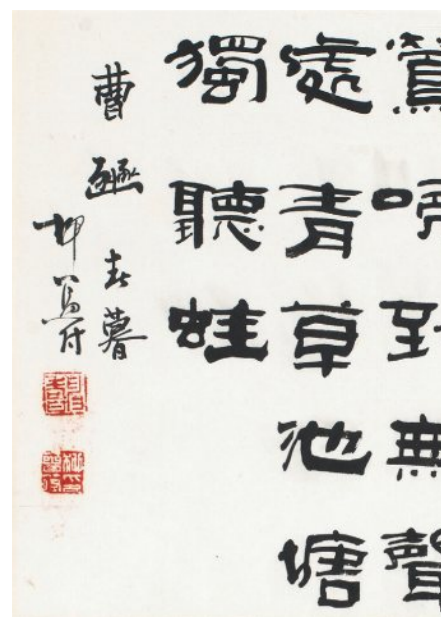 鶯啼到無聲
處青草池塘
獨聽蛙
曹豳春暮